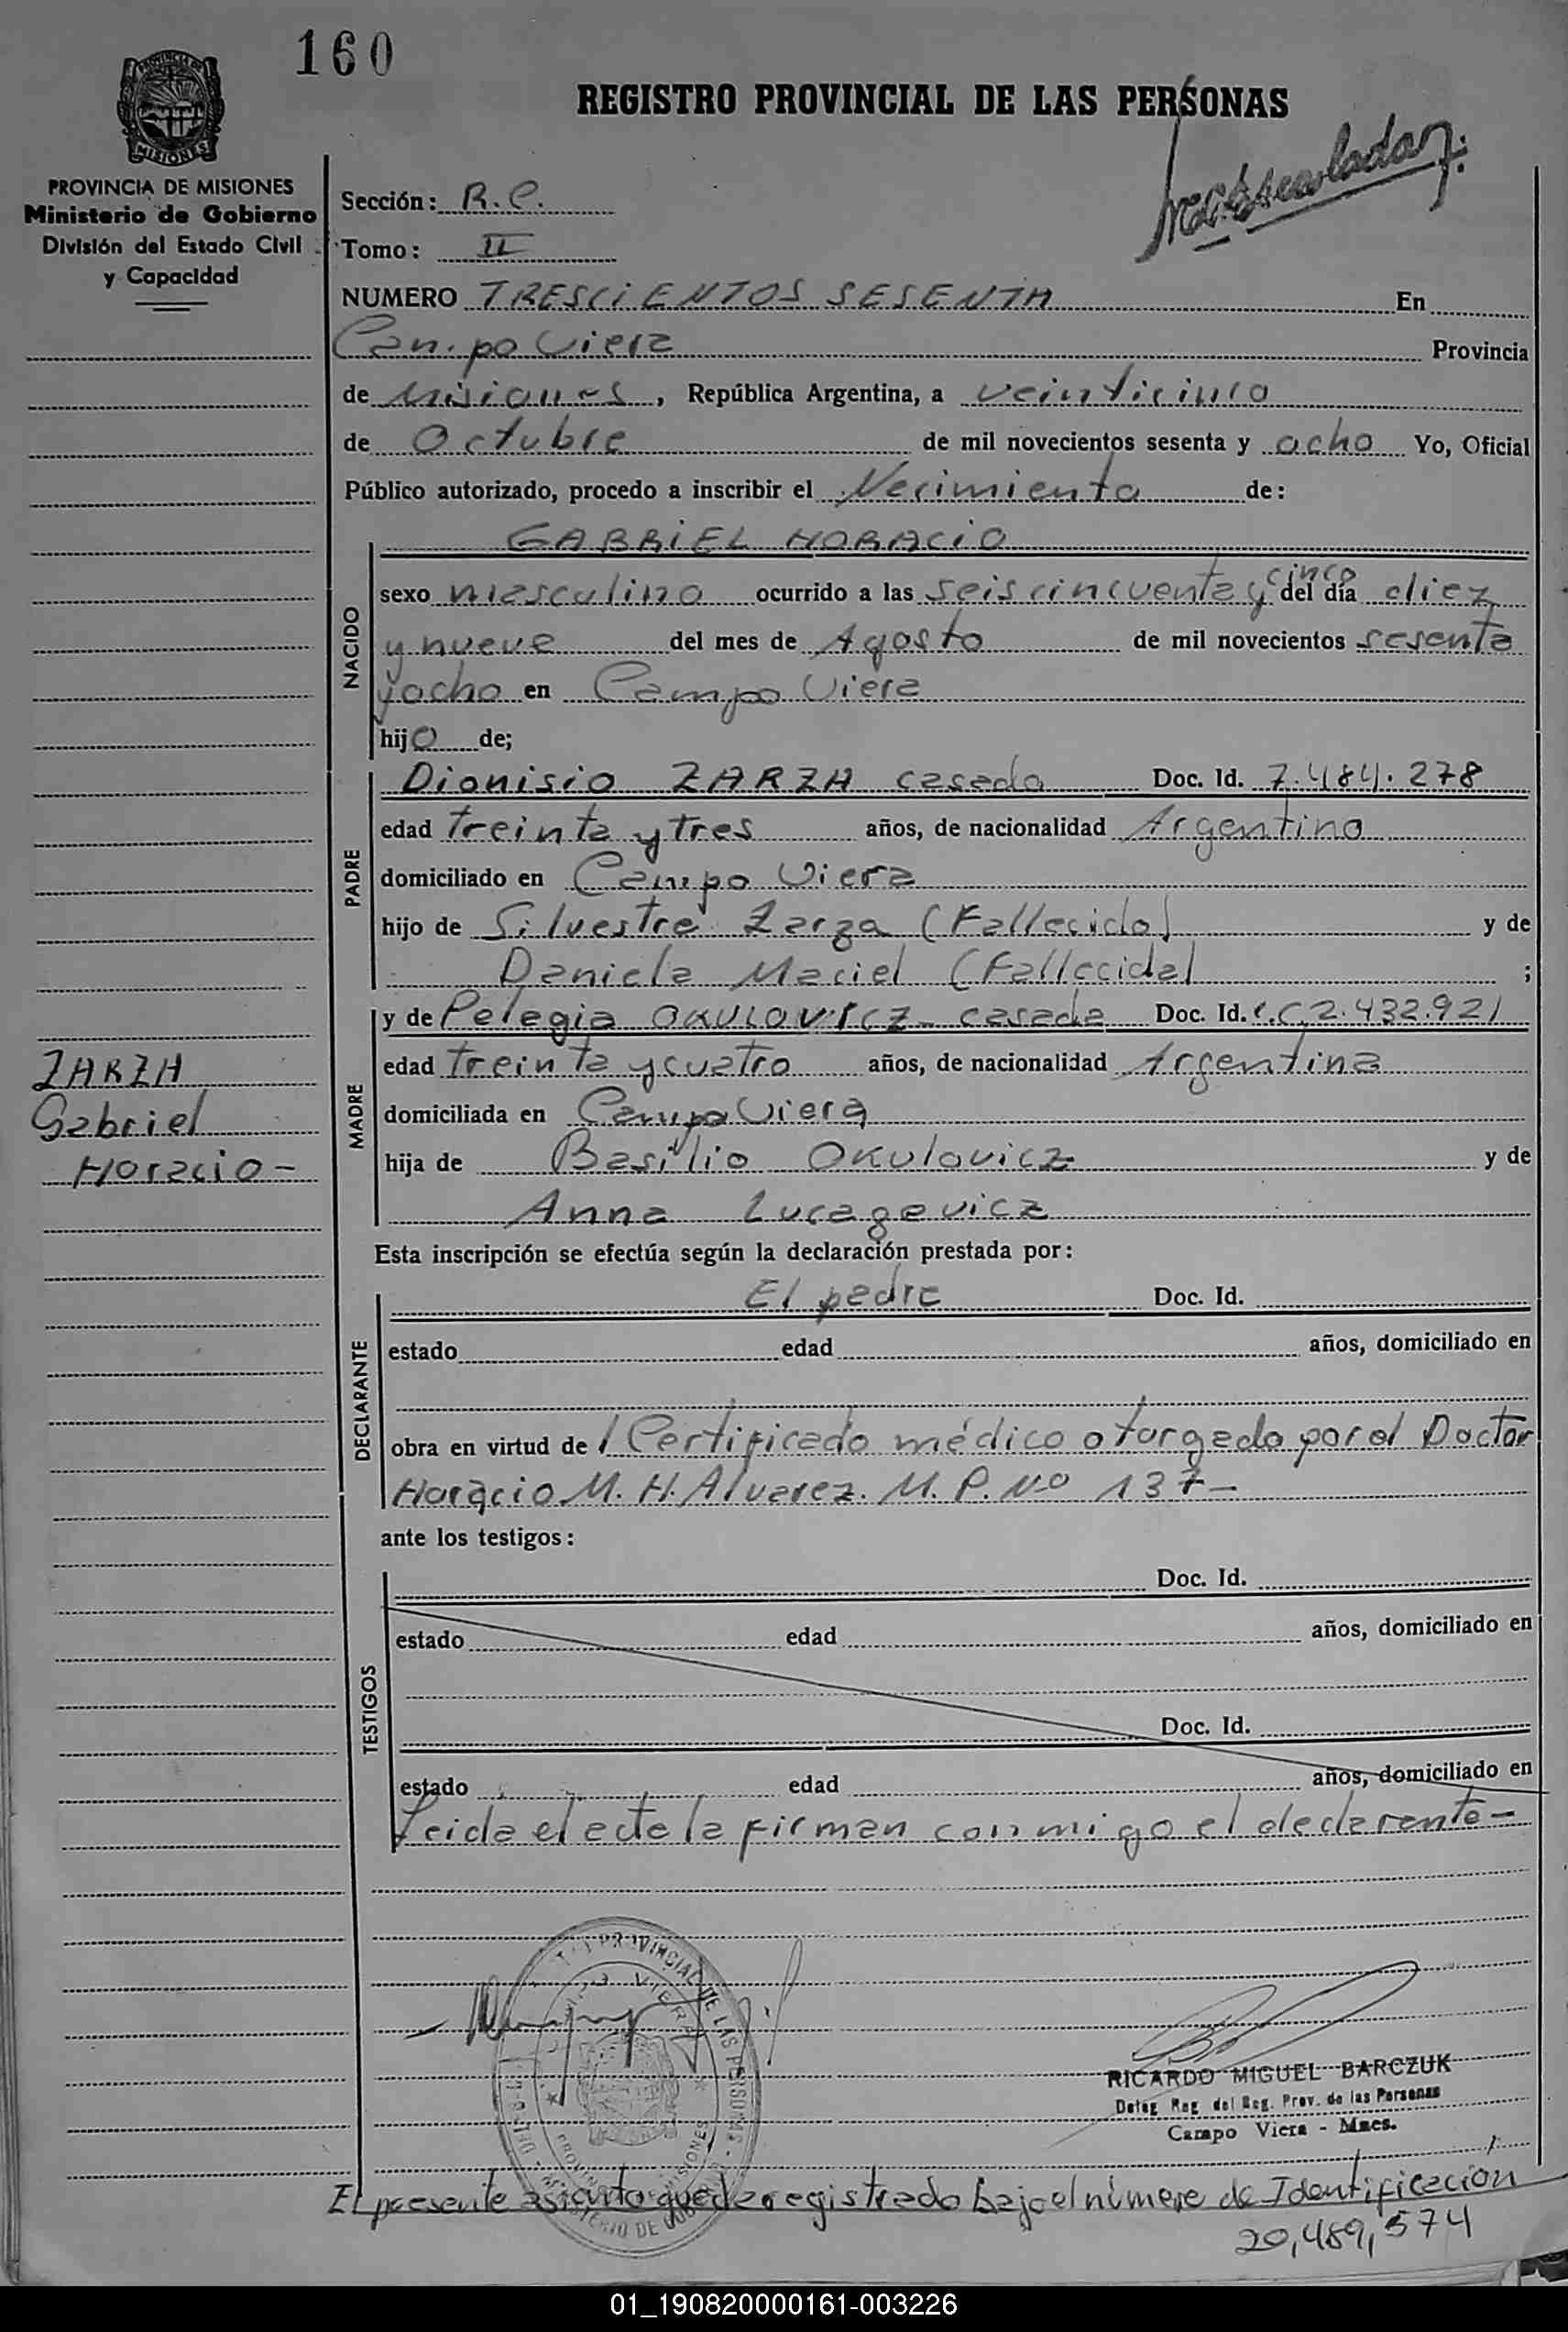 160
REGISTRO PROVINCIAL DE LAS PERSONAS
MISIONES
PROVINCIA DE MISIONES
Ministerio de Gobierno
División del Estado Civil
y Capacidad
Sección: R.C.
Tomo: II
NUMERO TRESCIENTOS SESENTA En
Campo Viera Provincia
de Misiones, República Argentina, a veinticinco
de Octubre de mil novecientos sesenta y ocho Yo, Oficial
Público autorizado, procedo a inscribir el Necimiento de:
GABRIEL HORACIO
NACIDO
sexo masculino ocurrido a las seis cincuenta y cinco del día diez
y nueve del mes de Agosto de mil novecientos sesenta
y ocho en Campo Viera
hijo de;
PADRE
Dionisio ZARZA casado Doc. Id. 7.484.278
edad treinta y tres años, de nacionalidad Argentino
domiciliado en Campo Viera
hijo de Silvestre Zarza (Fallecido) y de
Daniela Maciel (Fallecida) ;
MADRE
y de Pelegia OKULOVICZ casada Doc. Id. C.C. 2.432.921
edad treinta y cuatro años, de nacionalidad Argentina
domiciliada en Campo Viera
hija de Basilio Okulovicz y de
Anna Lucagevicz
ZARZA
Gabriel
Horacio -
Esta inscripción se efectúa según la declaración prestada por:
DECLARANTE
El padre Doc. Id.
estado edad años, domiciliado en
obra en virtud de / Certificado médico otorgado por el Doctor
Horacio M. H. Alvarez. M. P. No 137 -
ante los testigos:
TESTIGOS
Doc. Id.
estado edad años, domiciliado en
Doc. Id.
estado edad años, domiciliado en
Leida el acta la firman conmigo el declarante -
RICARDO MIGUEL BARCZUK
Deleg. Reg. del Reg. Prov. de las Personas
Campo Viera - Mnes.
El presente asiento queda registrado bajo el número de Identificación
20,489,574
01_190820000161-003226